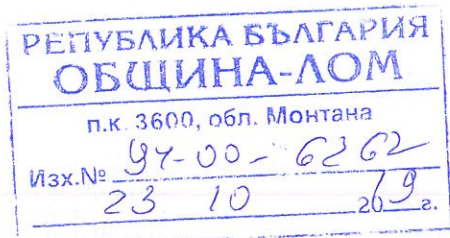 РЕПУБЛИКА БЪЛГАРИЯ
ОБЩИНА-ЛОМ
п.к. 3600, обл. Монтана
Изх.№ 94-00-6262
23 10 2019 г.